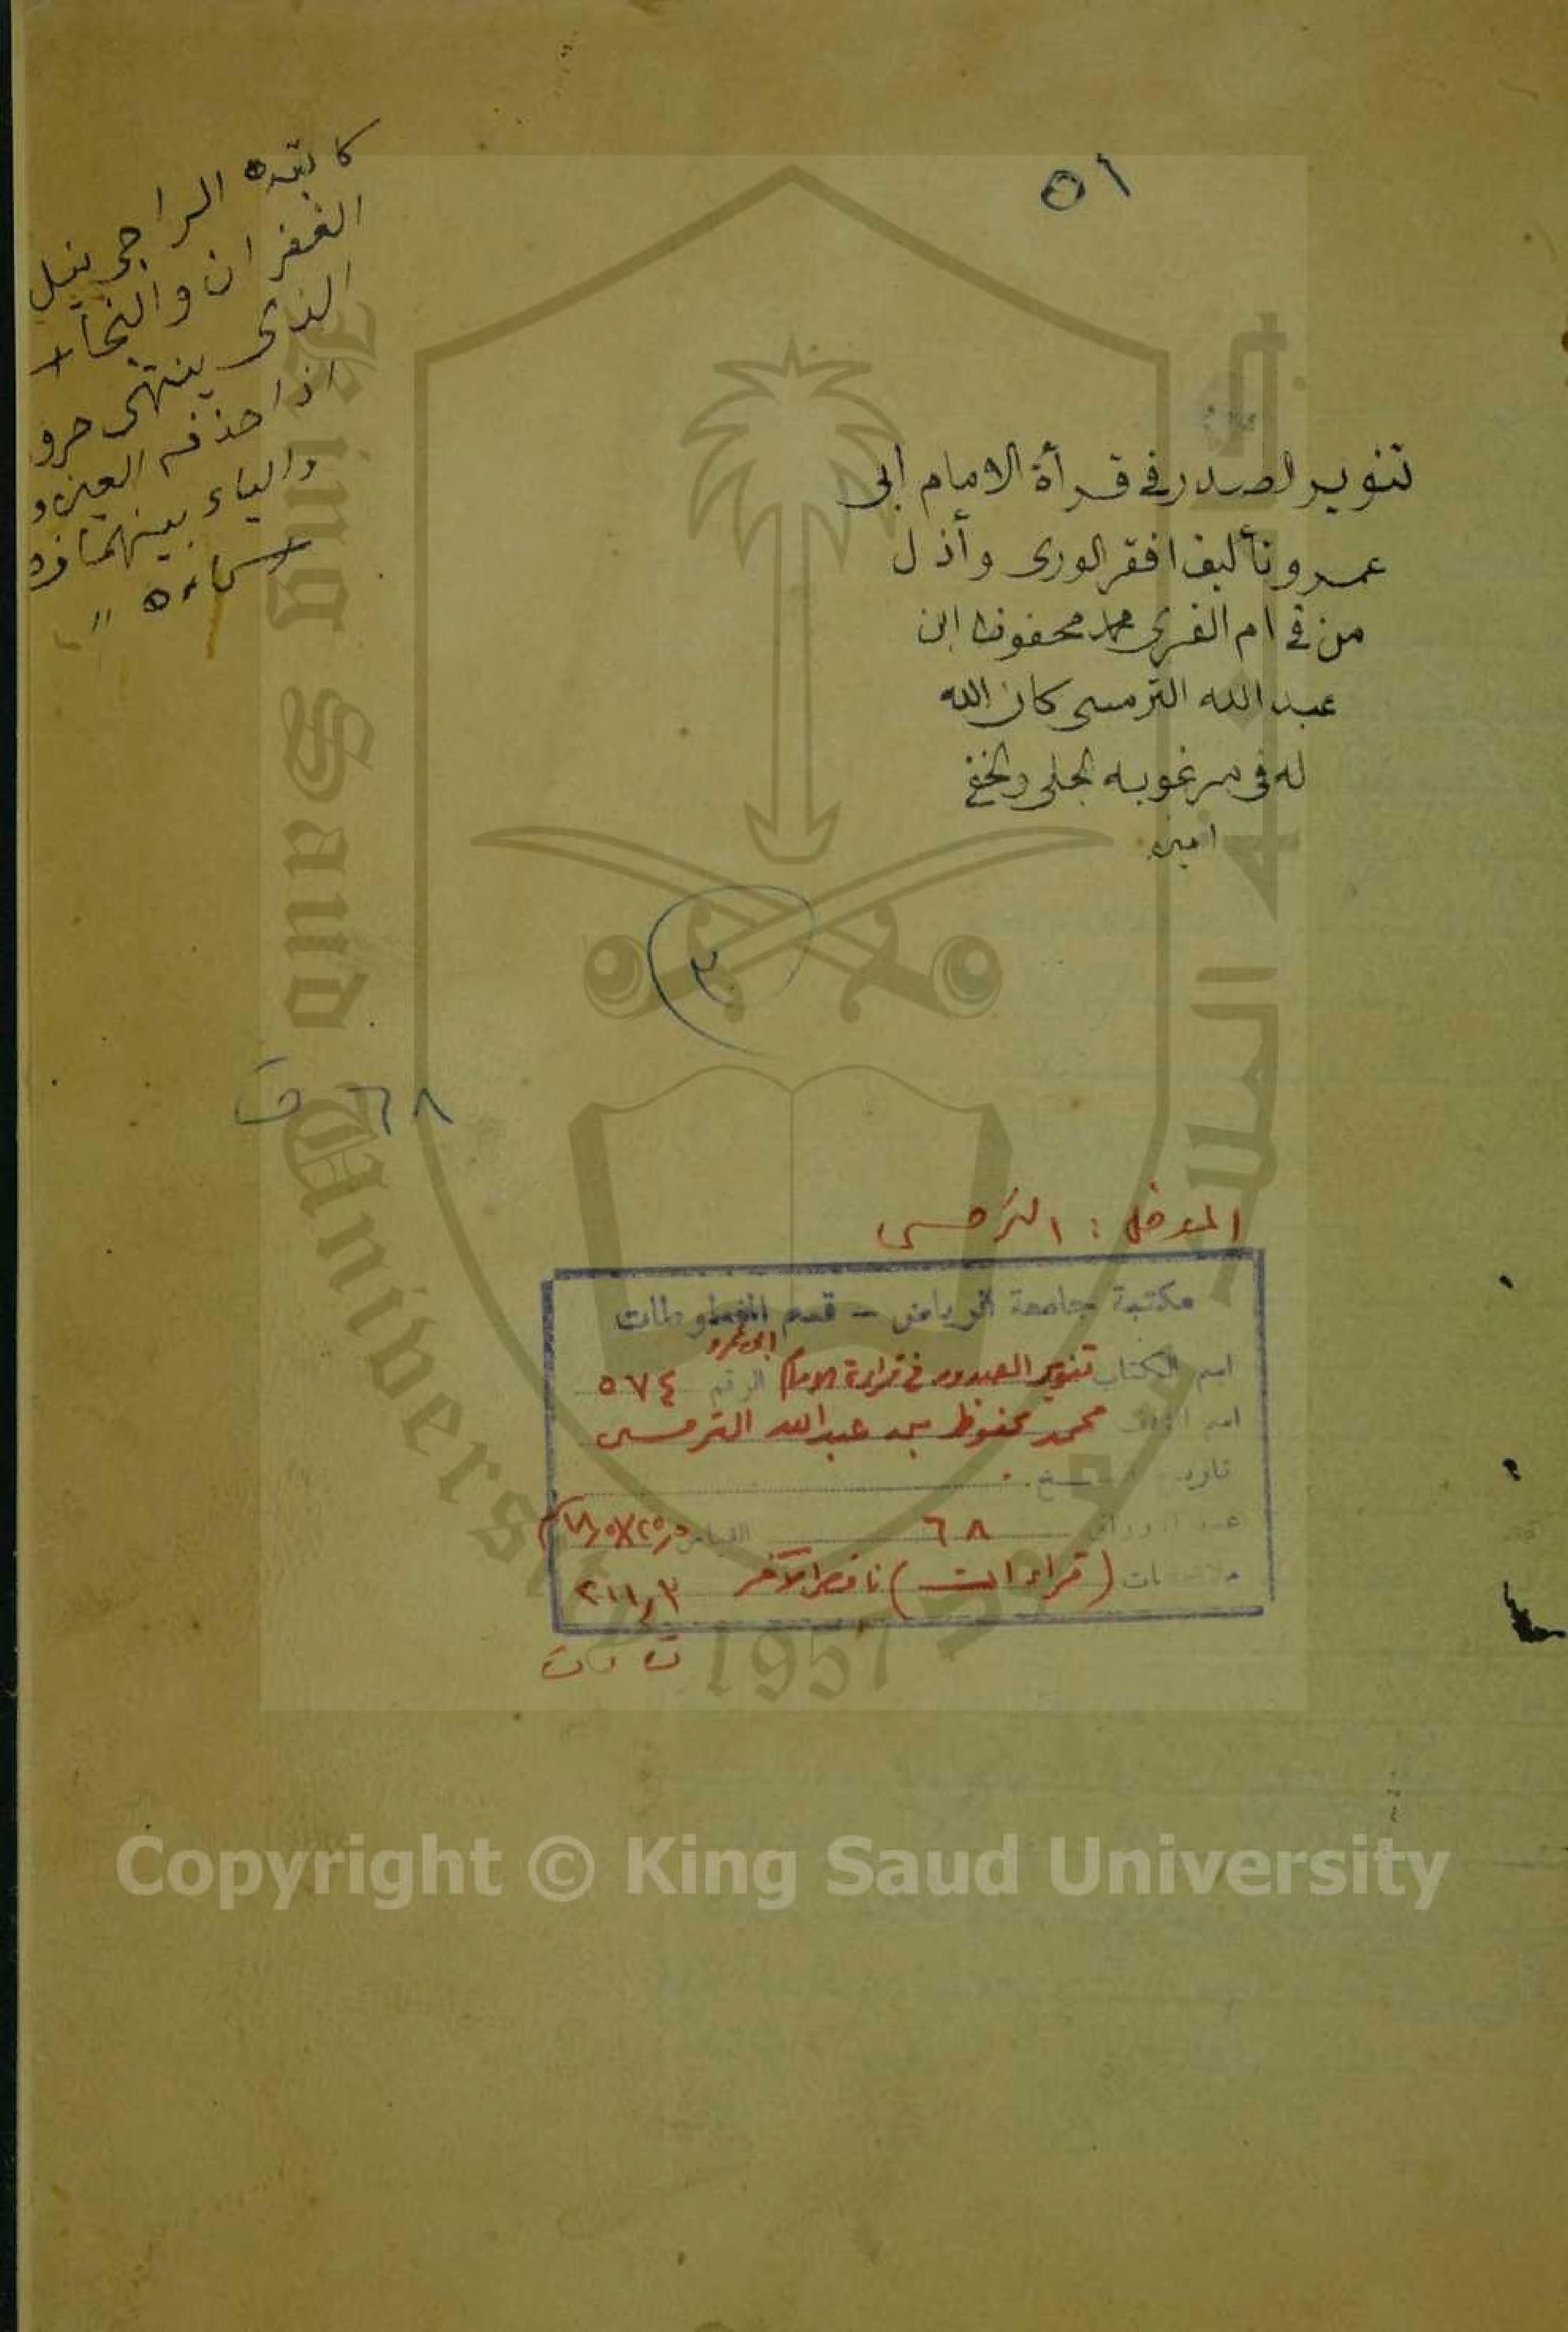 ٥١
تنوير الصدر في قرأة الامام أبى
عمرو تأليف افقر الورى وأذل
من في ام القرى محمد محفوظ ابن
عبد الله الترمسى كان الله
له في مرغوبه الجلى والخفى
امين
كاتبه الراجي نيل
الغفران والنجاة
الذى ينتهى حرو
اذا حذف العين و
والياء بينهما
٣
٦٨ ق
المدخل : الترمسى
مكتبة جامعة الرياض – قسم المخطوطات
اسم الكتاب تنوير الصدور في قراءة الامام أبى عمرو الرقم ٥٧٤
اسم المؤلف محمد محفوظ بن عبدالله الترمسى
تاريخ النسخ
عدد الاوراق ٦٨ القياس
ملاحظات (قراءات) ناقص الآخر ٢١١,٣
ت ت
King Saud University
1957
Copyright © King Saud University